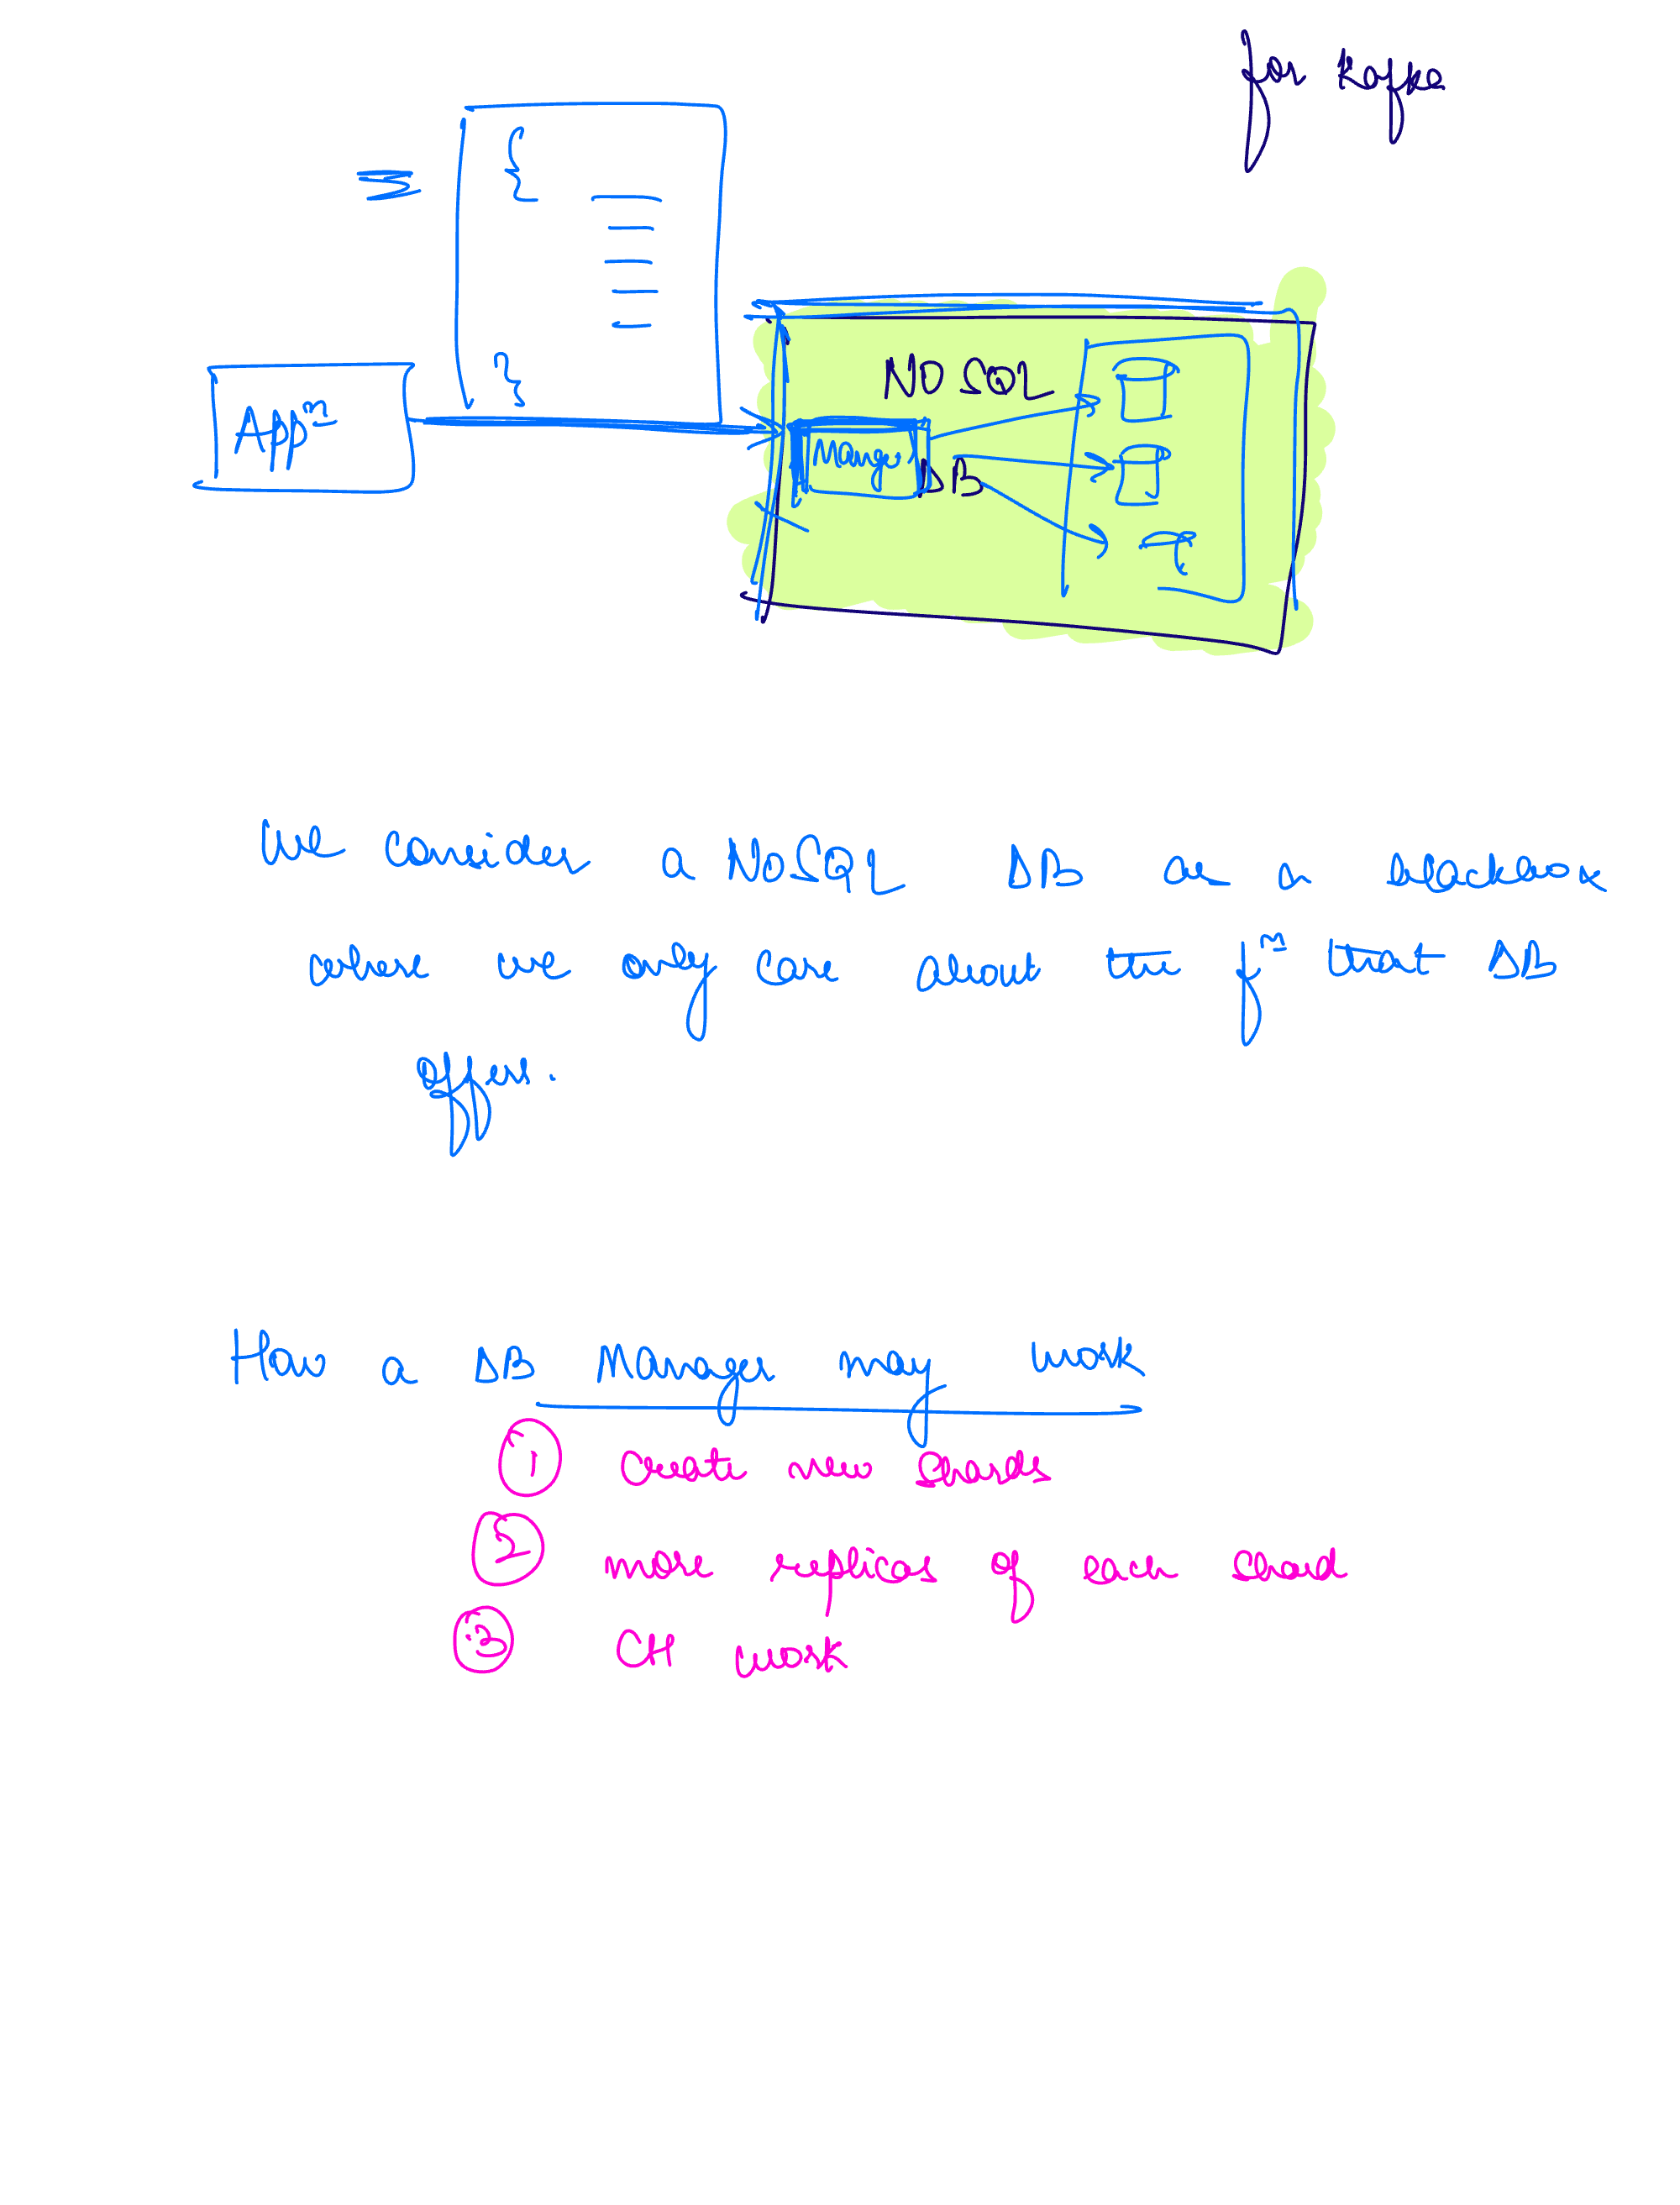 for Kafka
{
}
NOSQL
Appⁿ
Manger
DB
We consider a NoSQL DB as a blackbox
where we only care about the fⁿ that DB
offers.
How a DB Manager may work
① Create new Shards
② more replicas of each Shard
③ CH work